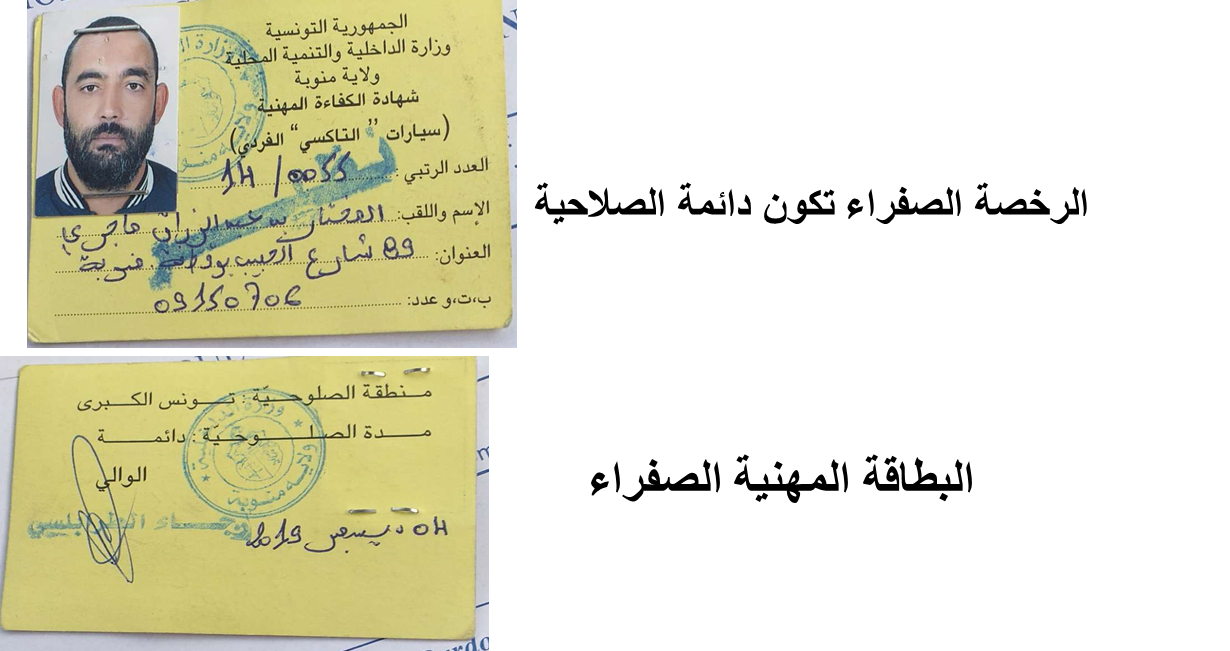 الجمهورية التونسية
وزارة الداخلية والتنمية المحلية
ولاية منوبة
شهادة الكفاءة المهنية
(سيارات "التاكسي" الفردي)
العدد الرتبي: 14/0055
الإسم واللقب: المختار بن عبد الرزاق ماجري
العنوان: 89 شارع الحبيب بورقيبة منوبة
ب،ت،و عدد: 09150706
الرخصة الصفراء تكون دائمة الصلاحية
منطقة الصلوحيّة: تونس الكبرى
مدة الصلوحيّة: دائمة
الوالي
04 ديسمبر 2019
ولاية منوبة
البطاقة المهنية الصفراء